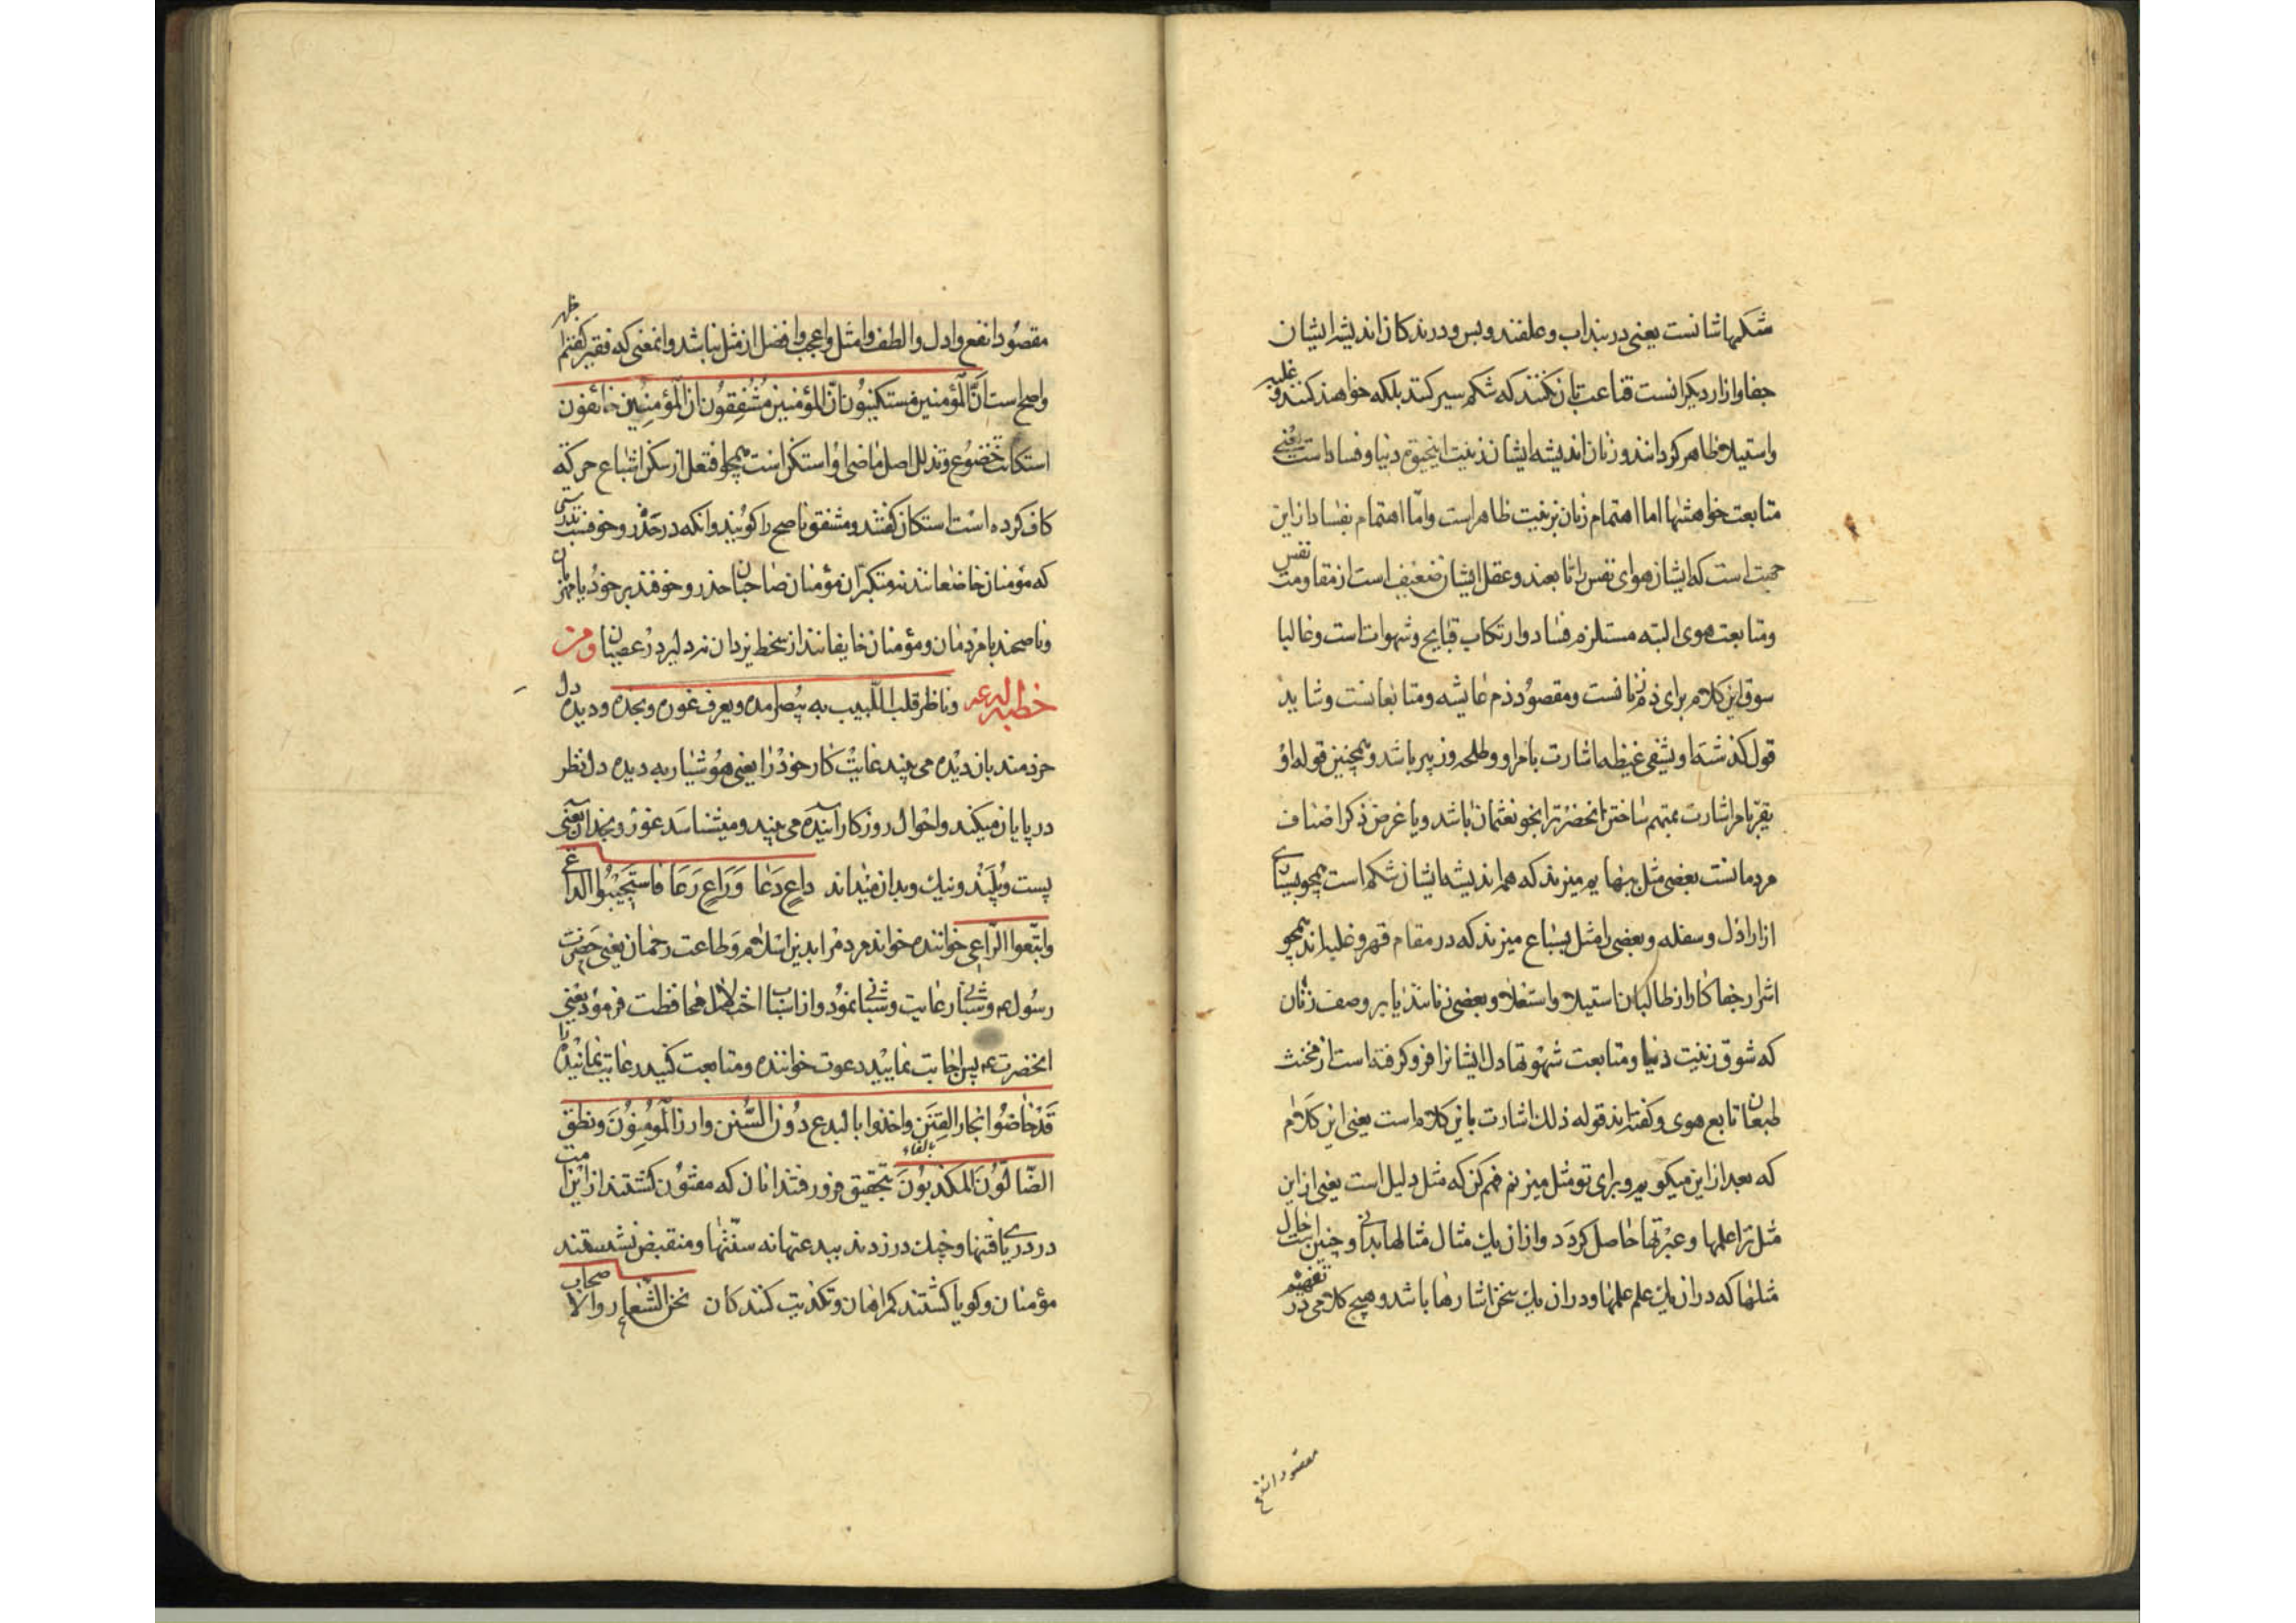 شکمهاشانست یعنی در بند اب و علفند و بس و درندکان اندیشۀ ایشان
جفا و ازار دیکرانست قناعت بان نکنند که شکم سیر کنند بلکه خواهند کنند و غلبه
واستیلا ظاهر کردانند و زنان اندیشه ایشان زینت اینحیوة دنیا و فسادست یعنی
متابعت خواهشها اما اهتمام زنان بزینت ظاهر است و امّا اهتمام بفساد از این
جهت است که ایشان هوای نفس را تابعند و عقل ایشان ضعیف است از مقاومت نفس
و متابعت هوی البته مستلزم فساد و ارتکاب قبایح و شهوات است و غالبا
سوق این کلام برای ذم زنانست و مقصود ذم عایشه و متابعانست و شاید
قول کذشته او یشفی غیظه اشارت بامر او و طلحه و زبیر باشد و همچنین قوله او
یقرّ بامر اشارت بمتهم ساختن انحضرت را بخون عثمان باشد و یا غرض ذکر اصناف
مردمانست بعضی مثل ببهایم میزند که هم اندیشه ایشان شکم است همچو بسیاری
از اراذل و سفله و بعضی را مثل بسباع میزند که در مقام قهر و غلبه اند همچو
اشرار جفاکار و از طالبان استیلا و استعلا و بعضی زنانند یا بر وصف زنان
که شوق زینت دنیا و متابعت شهوتها دل ایشانرا فرو کرفته است از مخنث
طبعان تابع هوی و کفته اند قوله ذلک اشارت باین کلام است یعنی این کلام
که بعد از این میکویم و برای تو مثل میزنم فهم کن که مثل دلیل است یعنی از این
مثل ترا علمها و عبرتها حاصل کردد و از ان یک مثال مثالها بدانی و چنین است حال
مثلها که در ان یک علم علمها و در ان یک سخن اشارها باشد و هیچ کلامی در تفهیم
مقصود انفع
مقصود انفع و ادل و الطف و امثل و اعجب و افضل از مثل نباشد و انمعنی که فقیر کفتم ظاهر
واضح است انّ المؤمنین مستکینون انّ المؤمنین مشفقون ان المؤمنین خائفون
استکانت خضوع و تذلل اصل ماضی او استکن است همچو افتعل از سکن اشباع حرکة
کاف کرده است استکان کفتند و مشفق ناصح را کویند و انکه در حذر و خوفست بدرستی
که مؤمنان خاضعانند نه متکبّران مؤمنان صاحبان حذر و خوفند بر خود یا مهربانان
و ناصحند با مردمان و مؤمنان خایفانند از سخط یزدان نه دلیر در عصیان و من
خطبة له ع و ناظر قلب اللّبیب به یبصر امده و یعرف غوره و نجده و دیده دل
خردمند بان دیده می بیند غایت کار خود را یعنی هوشیار به دیده دل نظر
در پایان میکند و احوال روزکار آینده می بیند و میشناسد غور و نجد ان یعنی
پست و بلند و نیک و بد ان میداند داعٍ دعا و راعٍ رعا فاستجیبوا الداعی
واتّبعوا الرّاعی خواننده خواند مردم را بدین اسلام و طاعت رحمان یعنی حضرت
رسول ص و شبانی رعایت و شبانی نمود و از اسباب اختلال محافظت فرمود یعنی
انحضرت ع پس اجابت نمایید دعوت خواننده و متابعت کنید رعایت نماینده را
قد خاضوا بحار الفتن واخذوا بالبدع دون السّنن وارز المؤمنون ونطق
بالفاء
الضّالّون المکذبون بتحقیق فرو رفتند انان که مفتون کشتند از این امت
در دریای فتنها و چنک در زدند ببدعتها نه سنّتها و منقبض نشستند
مؤمنان و کویا کشتند کمراهان و تکذیب کنندکان نحن الشّعار والاصحاب